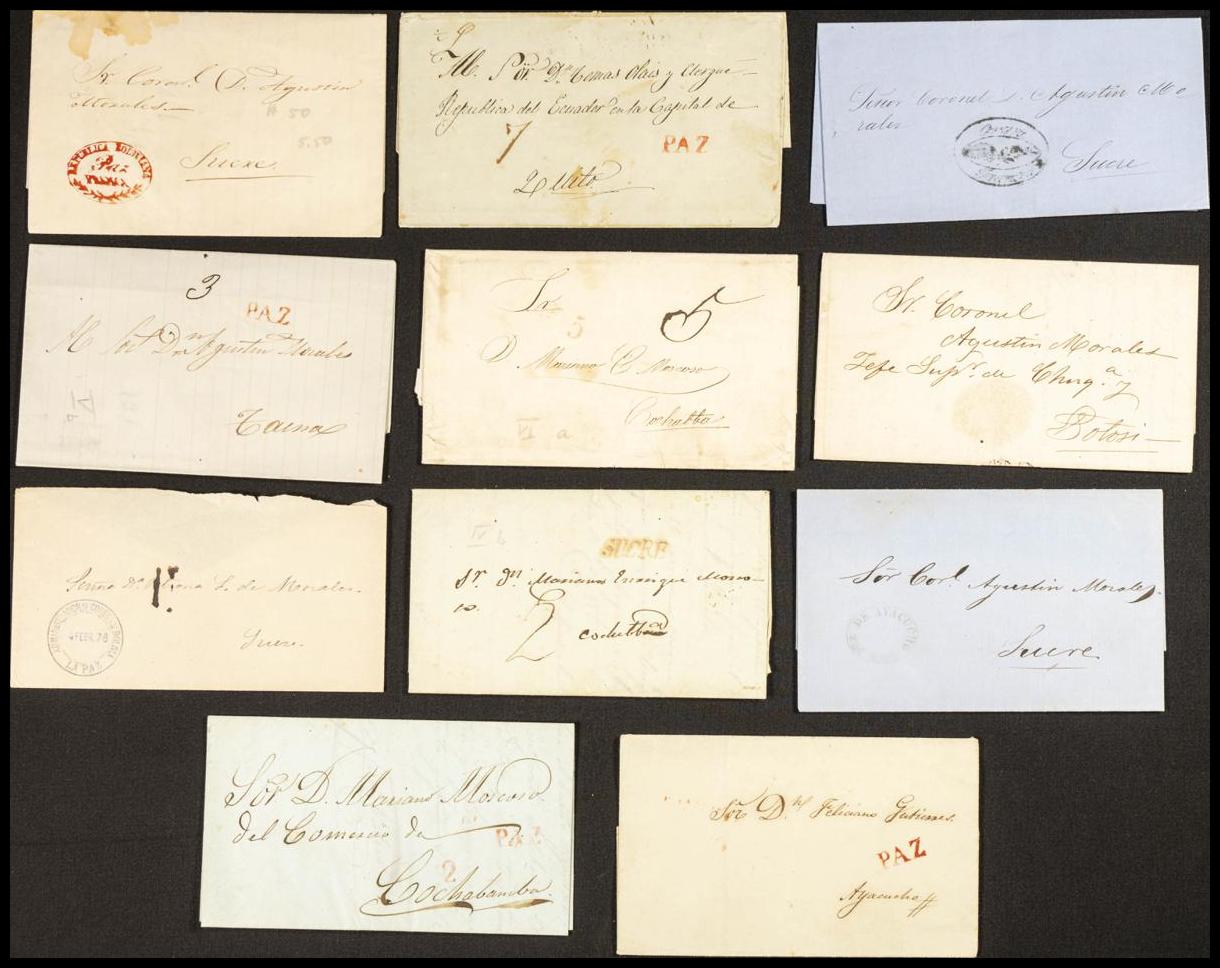 Sr. Coron.l D. Agustin
Morales
# 50
5.50
REPUBLICA BOLIVIANA
Paz
FRANCA
Sucre
Republica del Ecuador en la Capital de
7
PAZ
Quito
Señor Coronel D. Agustin Mo
rales
Sucre
3
PAZ
Agustin Morales
Tacna
Sr.
5
5
D. Mariano E. Moscoso
Cochabba
VI a
Sr. Coronel
Agustin Morales
Jefe Supr. de Chuq.a y
Potosi
Señora
L. de Morales.
4 FEBR. 78
LA PAZ
Sucre.
IV b
SUCRE
Sr. Dn. Mariano Enrrique Mosco-
so.
2
Sōr Corl. Agustin Morales.
PAZ DE AYACUCHO
Sucre
Sōr D. Mariano Moscoso.
del Comercio de
PAZ
2
Cochabamba.
Sōr Dn. Feliciano Gutierres.
PAZ
Ayacucho